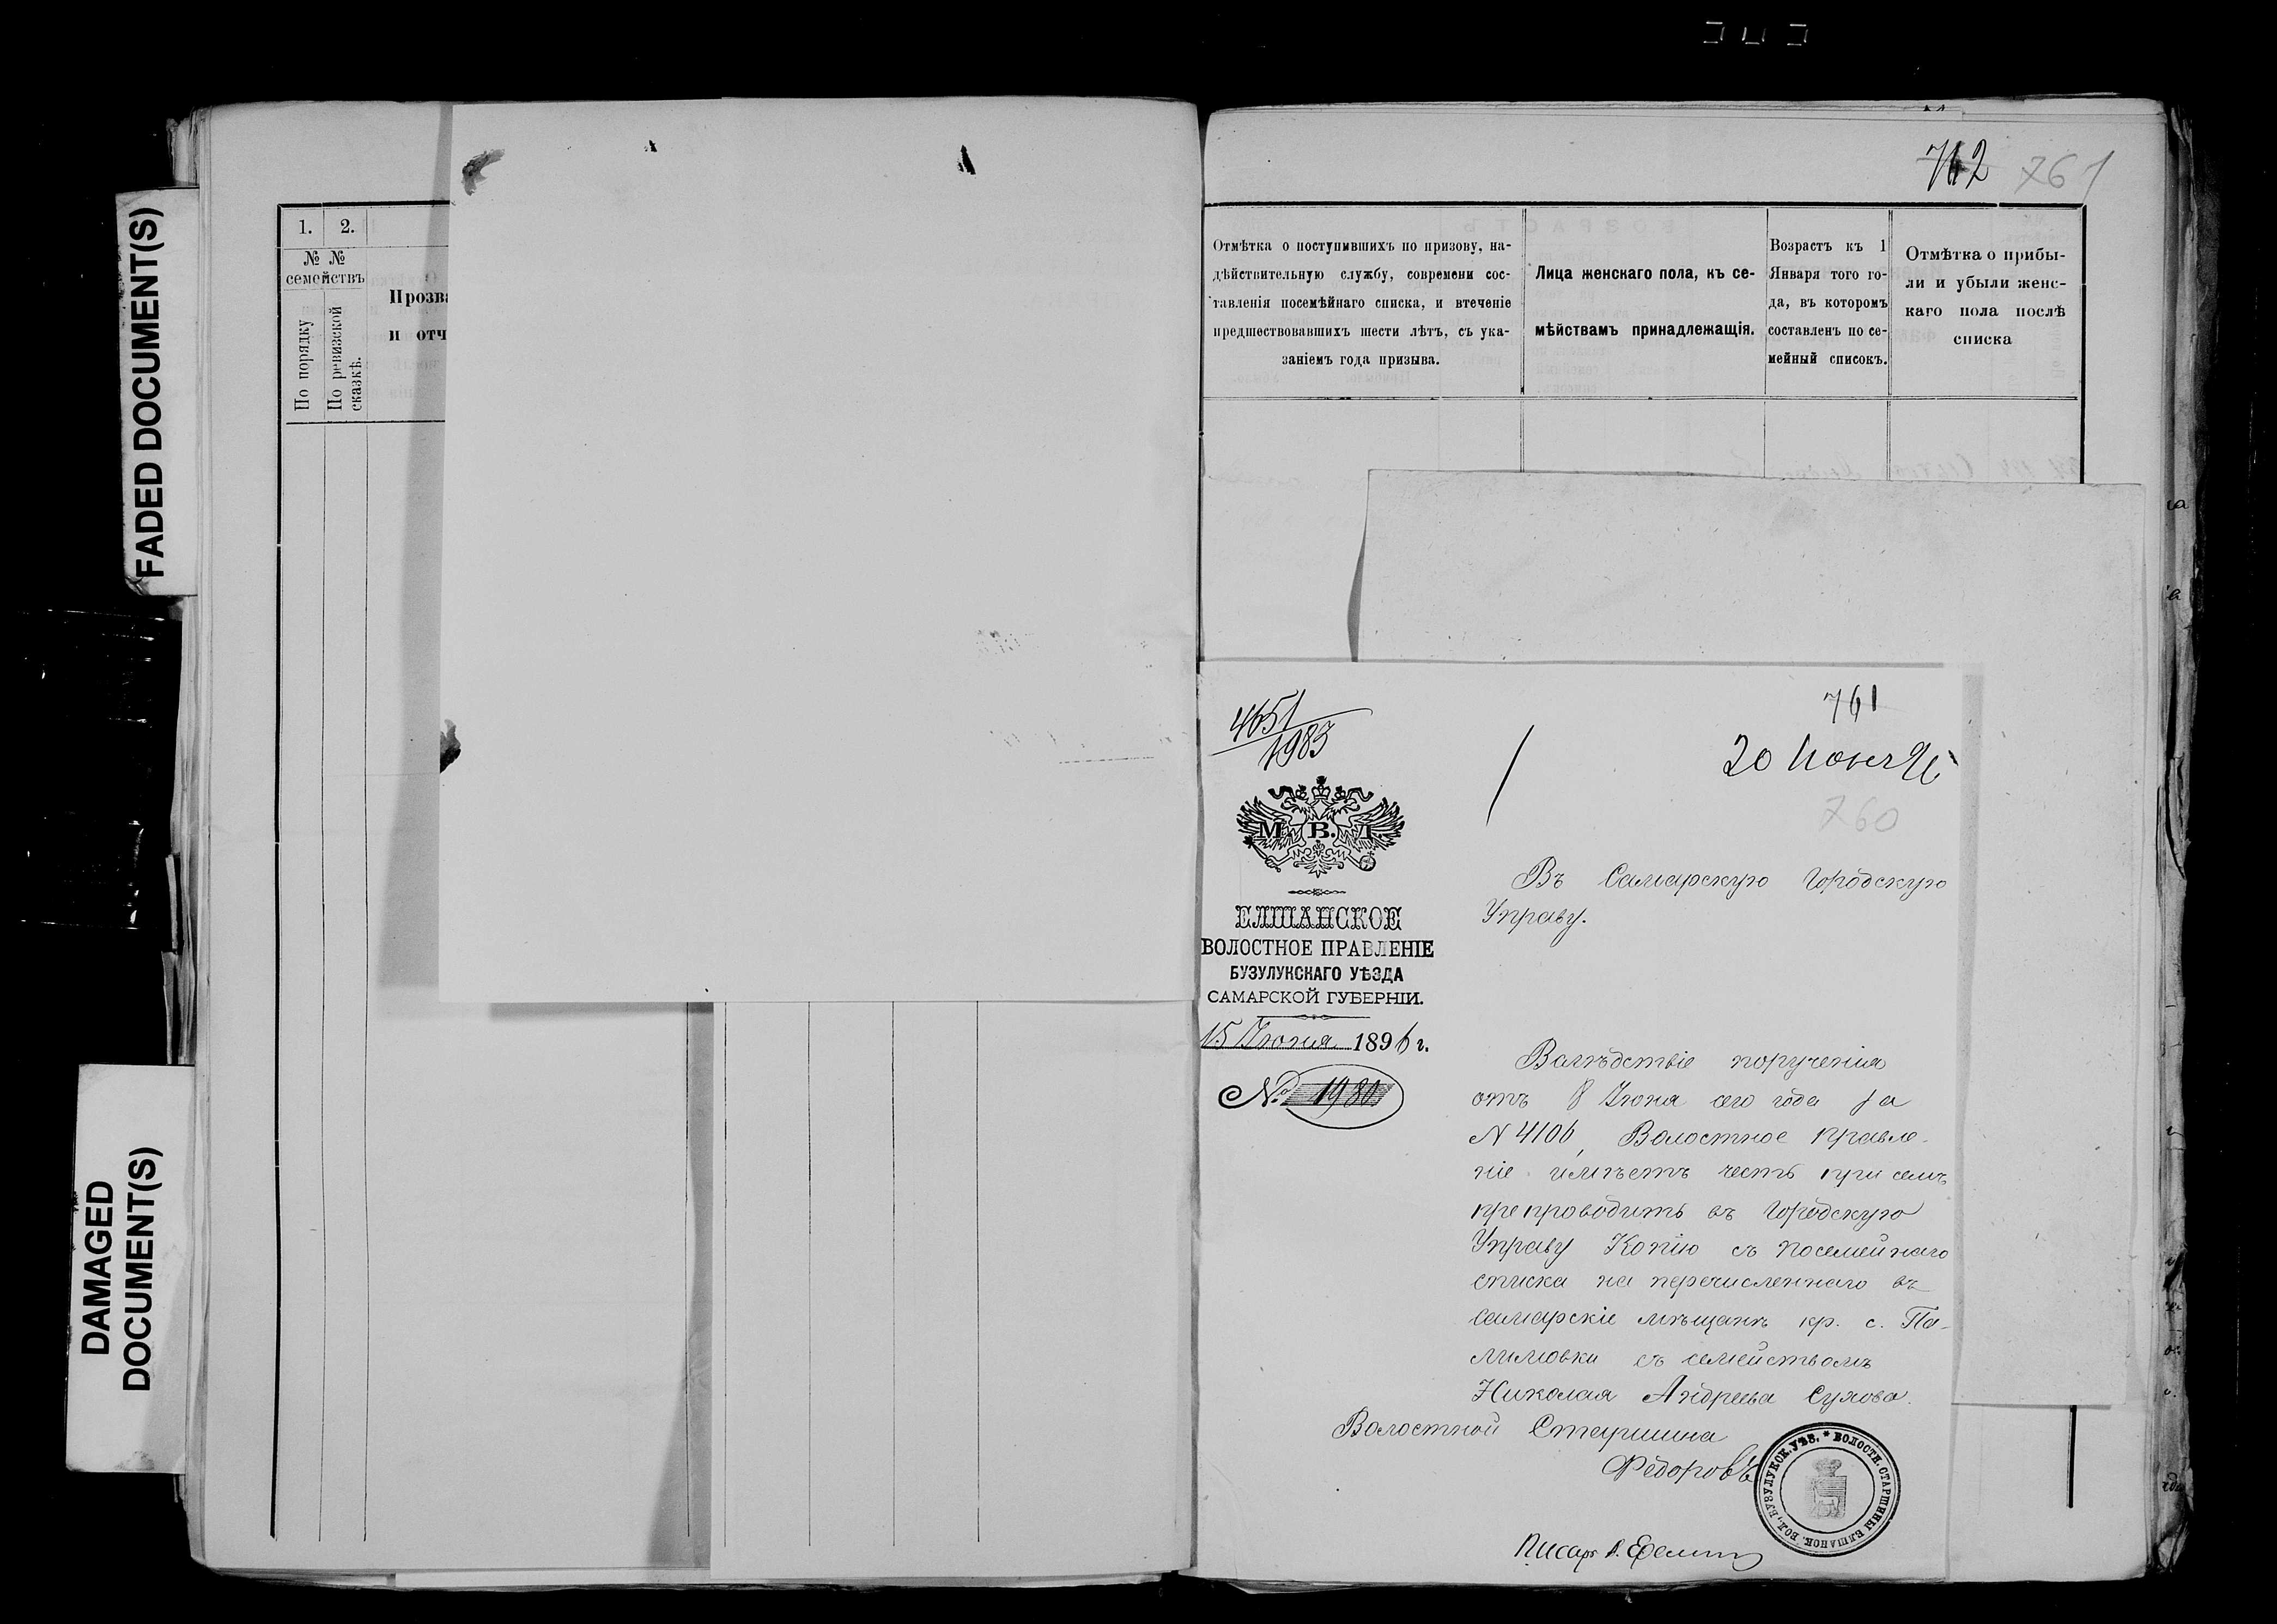 FADED DOCUMENT(S)
DAMAGED
DOCUMENT(S)
1. 2.
№ №
семействъ
По порядку
По ревизской
сказкѣ.
Прозв
и отч
742 761
Отмѣтка о поступившихъ по призову, на-
дѣйствительную службу, современи сос-
тавленія посемѣйнаго списка, и втеченіе
предшествовавшихъ шести лѣтъ, съ ука-
заніемъ года призыва.
Лица женскаго пола, къ се-
мѣйствамъ принадлежащія.
Возрастъ къ 1
Января того го-
да, въ которомъ
составленъ по се-
мейный списокъ.
Отмѣтка о прибы-
ли и убыли женс-
каго пола послѣ
списка
4651
1983
761
20 Июня 96
760
М. В. Д.
ЕЛШАНСКОЕ
ВОЛОСТНОЕ ПРАВЛЕНІЕ
БУЗУЛУКСКАГО УѢЗДА
САМАРСКОЙ ГУБЕРНІИ.
15 Іюня 1896 г.
№ 1980
Въ Самарскую Городскую
Управу.
Вслѣдствіе порученія
отъ 8 Іюня сего года за
N 4106, Волостное правле-
ніе имѣетъ честь при семъ
препроводить въ Городскую
Управу Копію съ посемейнаго
списка на перечисленнаго въ
самарскіе мѣщане кр. с. Па-
лимовки съ семействомъ
Николая Андреева Сухова.
Волостной Старшина
Федоровъ
ВОЛОСТН. СТАРШИНЫ ЕЛШАНСК. ВОЛ. БУЗУЛУКСК. УѢЗ.
Писарь